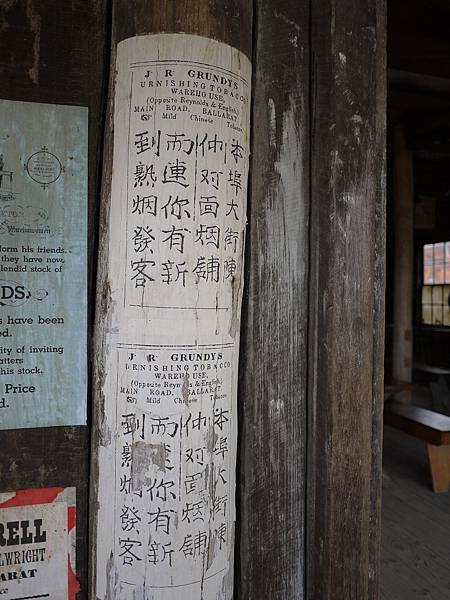 J R GRUNDYS
URNISHING TOBACCO
WAREHOUSE,
(Opposite Reynolds & English)
MAIN ROAD, BALLARAT.
Mild Chinese Tobacco
本埠大街陳
仲对面烟舖
而連你有新
到熟烟發客
J R GRUNDYS
URNISHING TOBACCO
WAREHOUSE,
(Opposite Reynolds & English)
MAIN ROAD, BALLARAT.
Mild Chinese Tobacco
本埠大街陳
仲对面烟舖
而連你有新
到熟烟發客
form his friends.
they have now,
splendid stock of
DS.
s have been
ed.
ity of inviting
atters
his stock.
Price
d.
RELL
LWRIGHT
ARAT